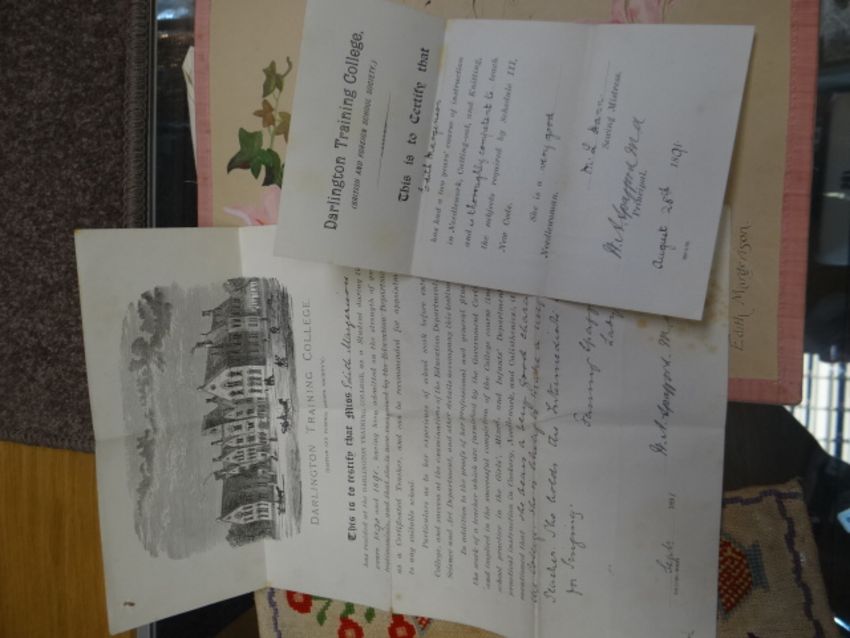 Darlington Training College,
(BRITISH AND FOREIGN SCHOOL SOCIETY.)
This is to Certify that
Edith Margerison
has had a two years' course of instruction
in Needlework, Cutting-out, and Knitting,
and is thoroughly competent to teach
the subjects required by Schedule III,
New Code.
She is a very good
Needlewoman.
Sewing Mistress.
W. A. Spafford M.A.
Principal.
August 28th 1891
DARLINGTON TRAINING COLLEGE.
(BRITISH AND FOREIGN SCHOOL SOCIETY).
This is to testify that Miss Edith Margerison
has resided at the DARLINGTON TRAINING COLLEGE, as a Student during the
years 1890 and 1891, having been admitted on the strength of
by the Education Department
as a Certificated Teacher, and can be recommended for appointment
to any suitable school.
Particulars as to her experience of school work before
College, and success at the examinations of the Education Department
Science and Art Department, and other details accompany this
In addition to the proofs of her professional and general
the work of a teacher which are furnished by the Government
and implied in the successful completion of the College course
school practice in the Girls', Mixed, and Infants' Department
practical instruction in Cookery, Needlework, and Calisthenics,
mentioned that she bears a very good
She is likely to make a very
Teacher. She holds the Intermediate
for Singing.
Fanny
Lady
W. A. Spafford M.
Sept. 1891
Edith Margerison.